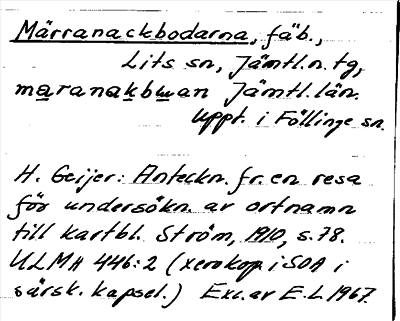 Märranackbodarna, fäb.,
Lits sn, Jämtl.n. tg,
maranakbωan Jämtl. län.
Uppt. i Föllinge sn.
H. Geijer: Anteckn. fr. en resa
för undersökn. av ortnamn
till kartbl. Ström, 1910, s. 78.
ULMA 446:2 (xerokop. i SOA i
särsk. kapsel.) Exc. av E.L 1967.